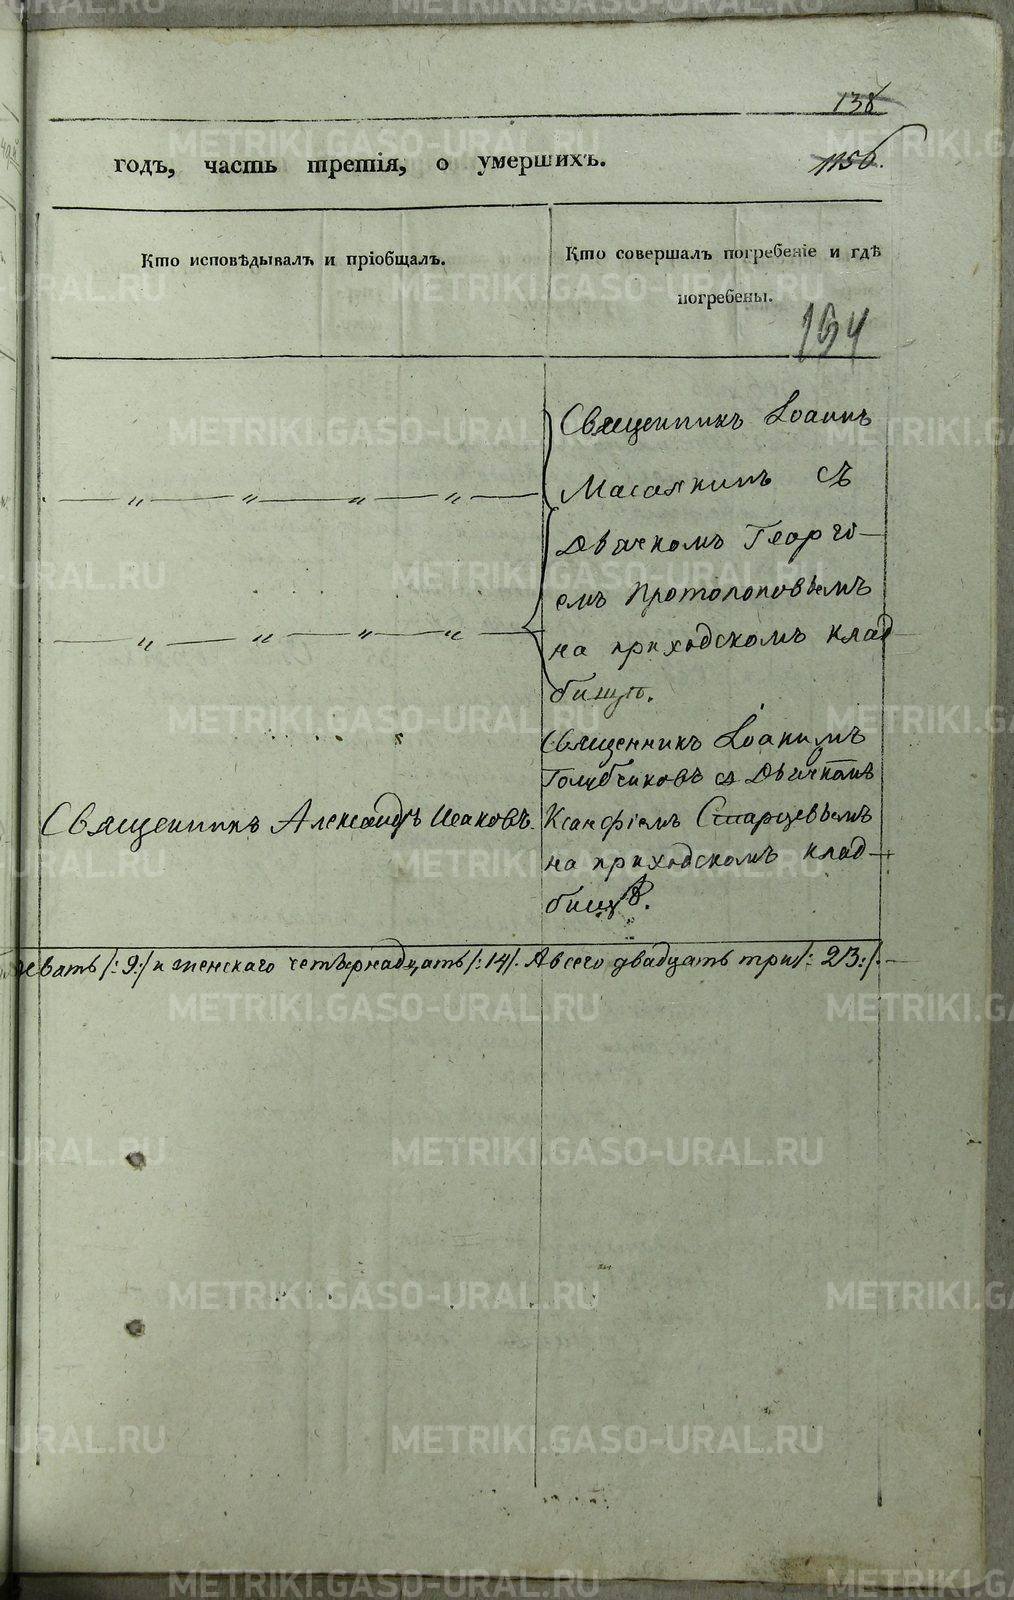 138
1156.
годъ, часть третія, о умершихъ.
Кто исповѣдывалъ и пріобщалъ.
Кто совершалъ погребеніе и гдѣ
погребены.
194
Священникъ Іоаннъ
Масалкинъ съ
Дьячкомъ Георгі-
емъ Протопоповымъ
на приходскомъ клад
бищѣ.
Священникъ Іоакимъ
Голубчиковъ съ Дьячкомъ
Священникъ Александръ Исаковъ.
Ксанфіемъ Старцевымъ
на приходскомъ клад-
бищѣ.
девять /:9:/ и женскаго четырнадцать /:14/. А всего двадцать три /:23:/.
METRIKI.GASO-URAL.RU